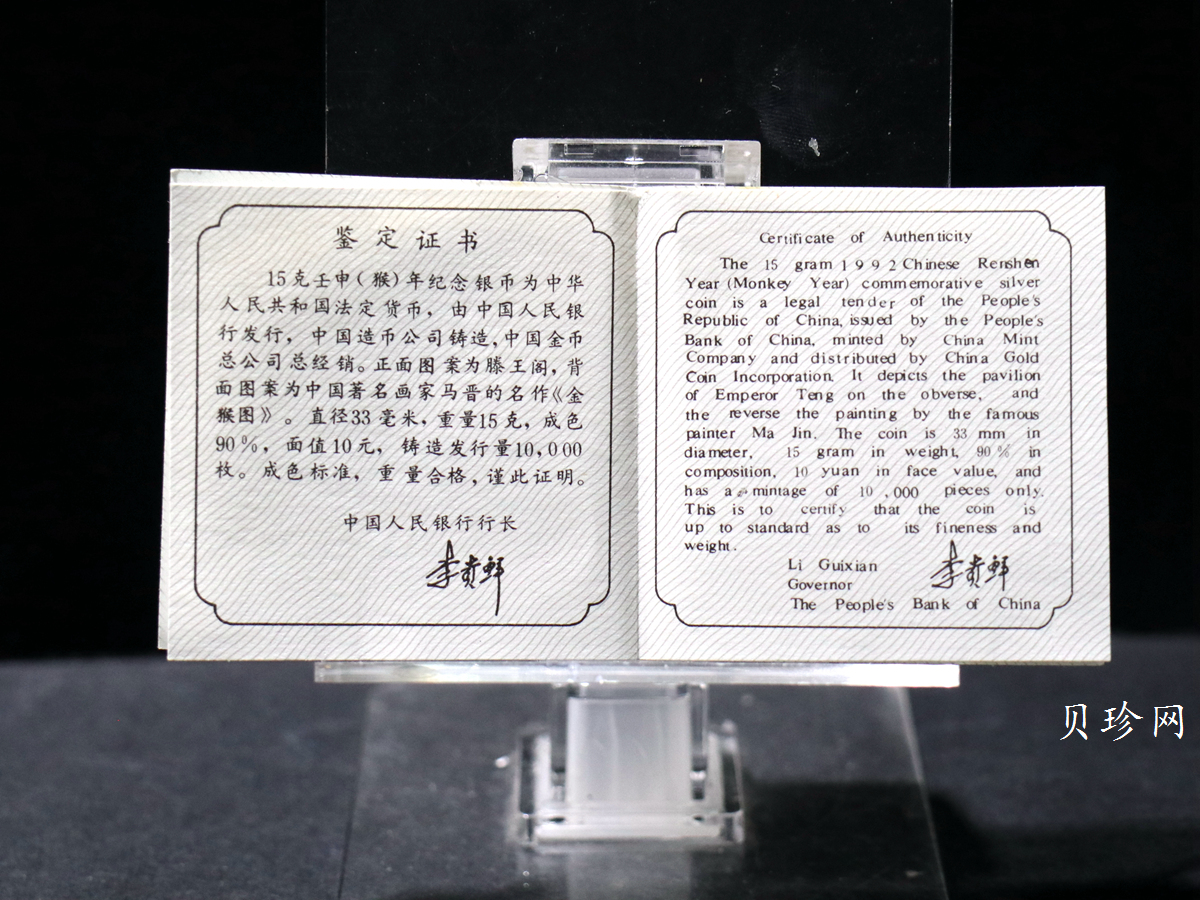 鉴定证书
15克壬申(猴)年纪念银币为中华
人民共和国法定货币，由中国人民银
行发行，中国造币公司铸造，中国金币
总公司总经销。正面图案为滕王阁，背
面图案为中国著名画家马晋的名作《金
猴图》。直径33毫米，重量15克，成色
90%，面值10元，铸造发行量10,000
枚。成色标准，重量合格，谨此证明。
中国人民银行行长
李贵鲜
Certificate of Authenticity
The 15 gram 1992 Chinese Renshen
Year (Monkey Year) commemorative silver
coin is a legal tender of the People's
Republic of China, issued by the People's
Bank of China, minted by China Mint
Company and distributed by China Gold
Coin Incorporation. It depicts the pavilion
of Emperor Teng on the obverse, and
the reverse the painting by the famous
painter Ma Jin. The coin is 33 mm in
diameter, 15 gram in weight, 90% in
composition, 10 yuan in face value, and
has a mintage of 10,000 pieces only.
This is to certify that the coin is
up to standard as to its fineness and
weight.
Li Guixian
Governor
The People's Bank of China
李贵鲜
贝珍网